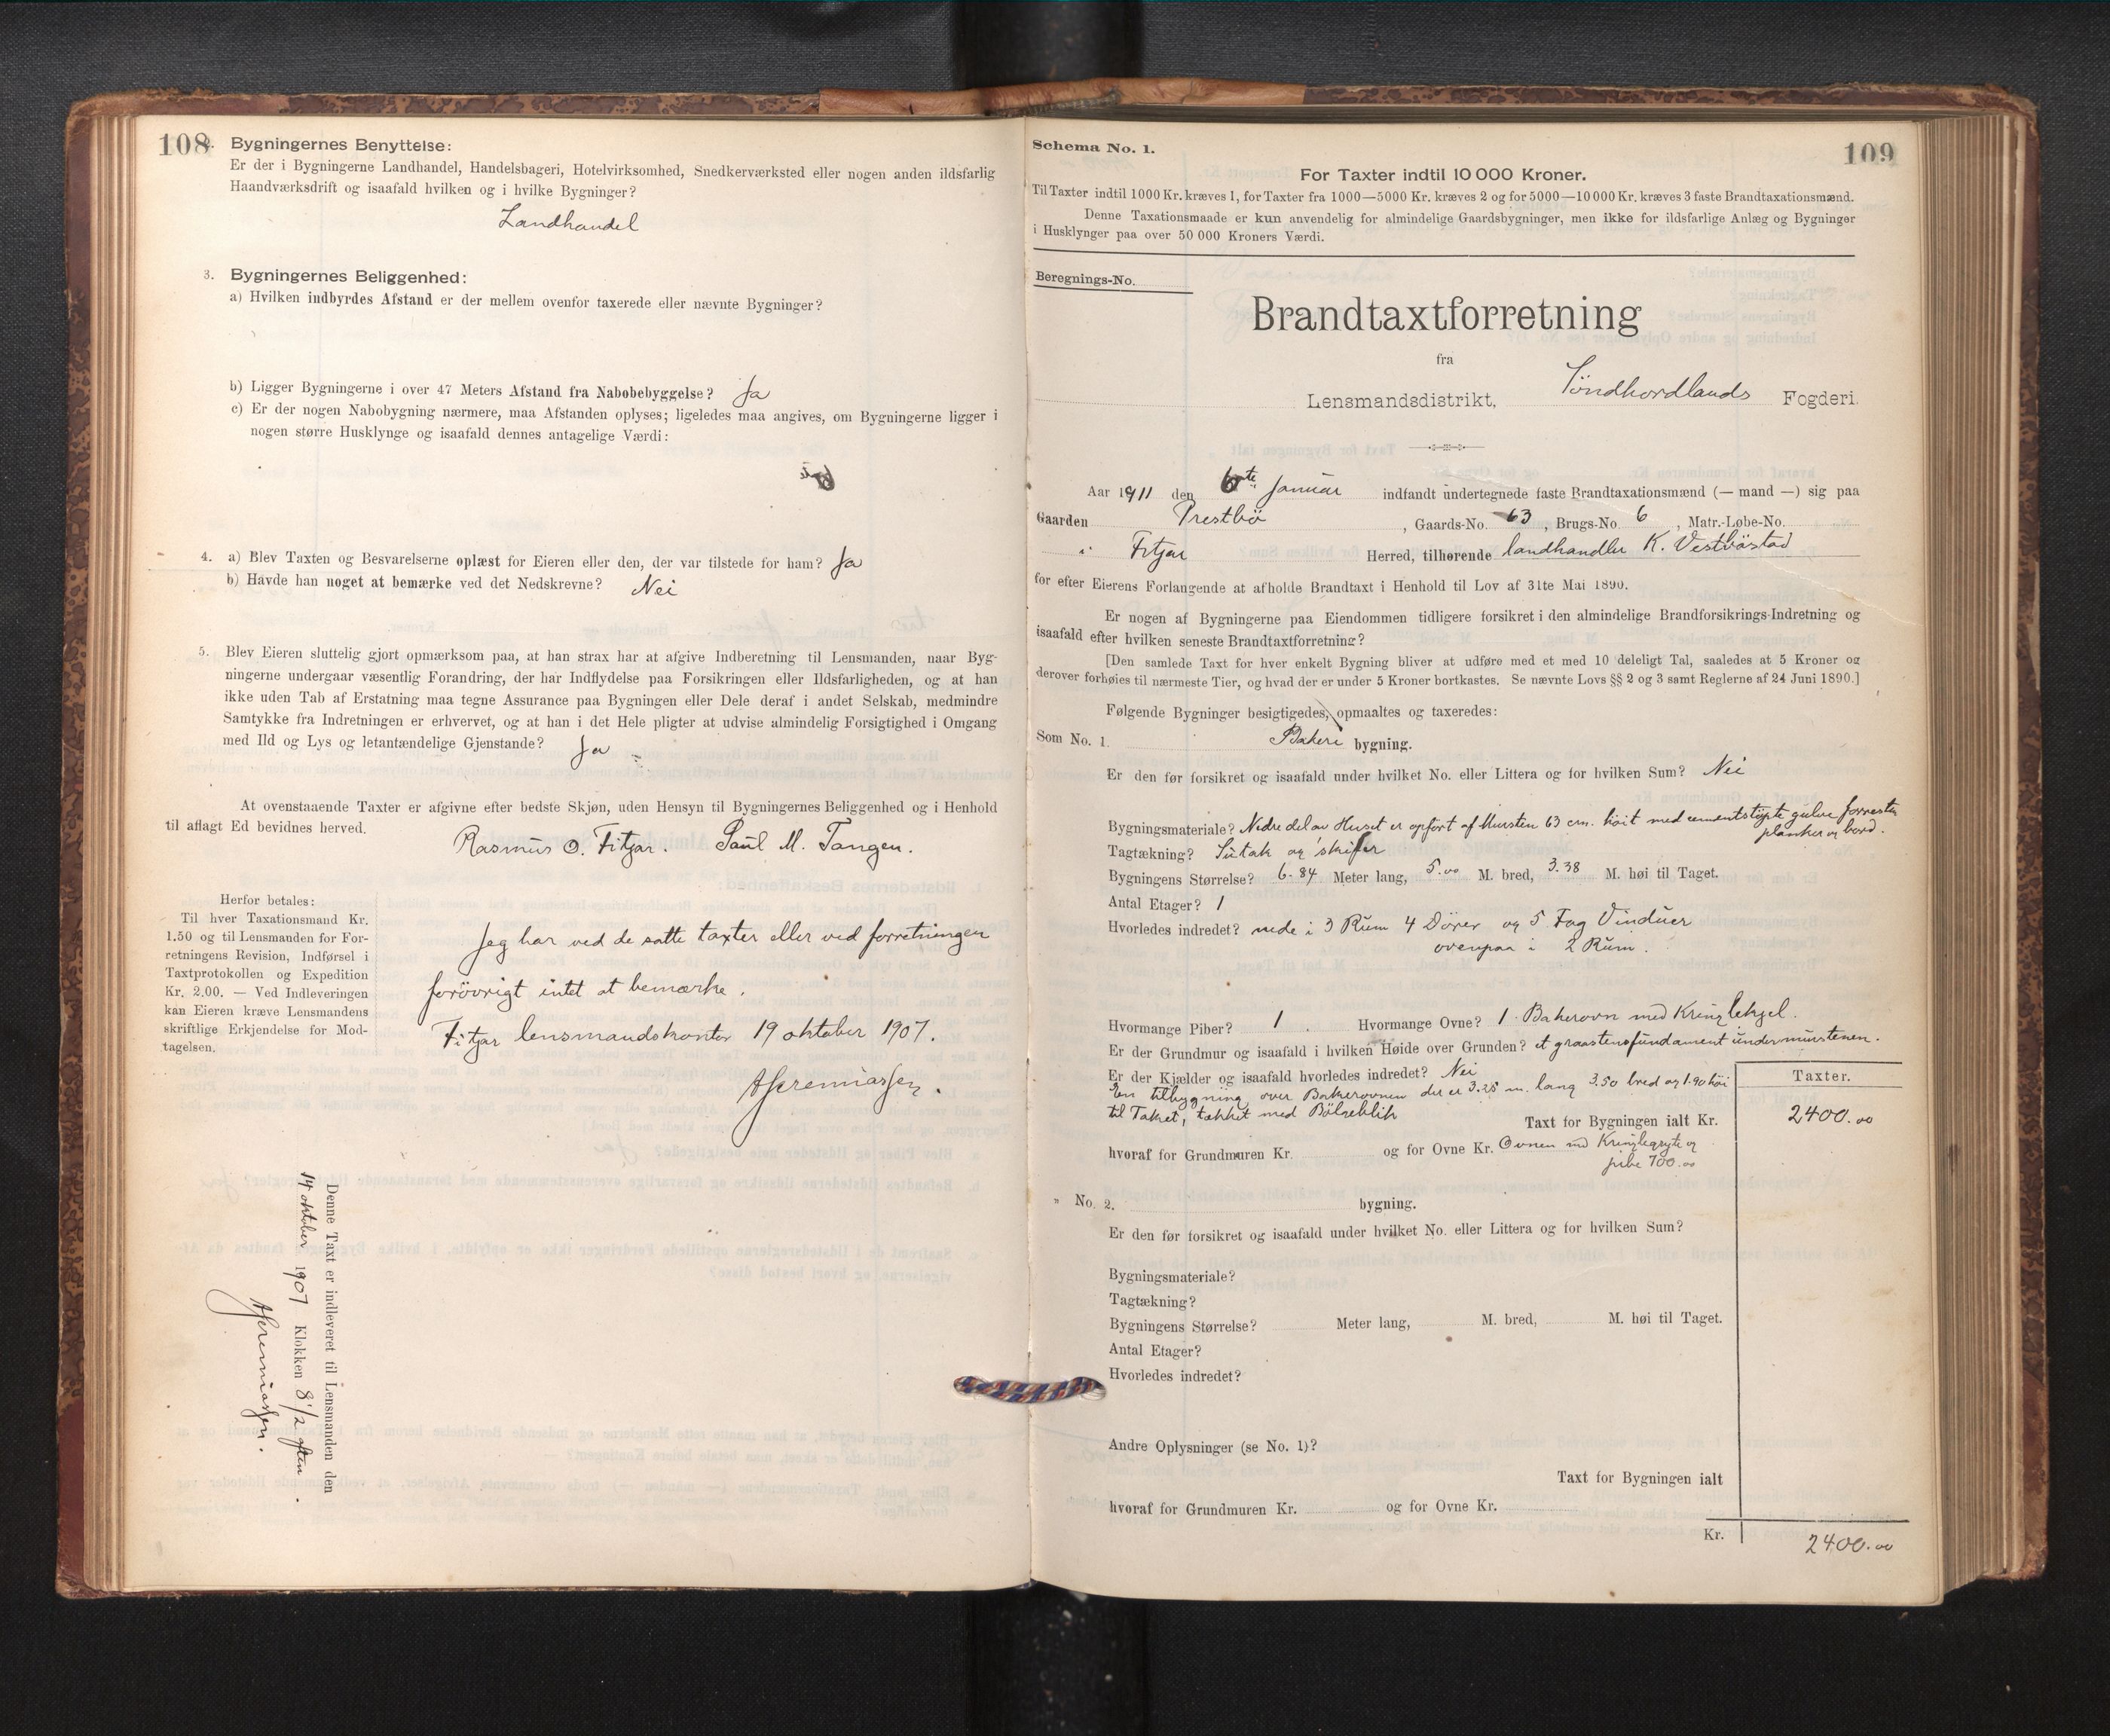 108
2. Bygningernes Benyttelse:
Er der i Bygningerne Landhandel, Handelsbageri, Hotelvirksomhed, Snedkerværksted eller nogen anden ildsfarlig
Haandværksdrift og isaafald hvilken og i hvilke Bygninger?
Landhandel
3. Bygningernes Beliggenhed:
a) Hvilken indbyrdes Afstand er der mellem ovenfor taxerede eller nævnte Bygninger?
b) Ligger Bygningerne i over 47 Meters Afstand fra Nabobebyggelse? Ja
c) Er der nogen Nabobygning nærmere, maa Afstanden oplyses; ligeledes maa angives, om Bygningerne ligger i
nogen større Husklynge og isaafald dennes antagelige Værdi:
4. a) Blev Taxten og Besvarelserne oplæst for Eieren eller den, der var tilstede for ham? Ja
b) Havde han noget at bemærke ved det Nedskrevne? Nei
5. Blev Eieren sluttelig gjort opmærksom paa, at han strax har at afgive Indberetning til Lensmanden, naar Byg-
ningerne undergaar væsentlig Forandring, der har Indflydelse paa Forsikringen eller Ildsfarligheden, og at han
ikke uden Tab af Erstatning maa tegne Assurance paa Bygningen eller Dele deraf i andet Selskab, medmindre
Samtykke fra Indretningen er erhvervet, og at han i det Hele pligter at udvise almindelig Forsigtighed i Omgang
med Ild og Lys og letantændelige Gjenstande? Ja
At ovenstaaende Taxter er afgivne efter bedste Skjøn, uden Hensyn til Bygningernes Beliggenhed og i Henhold
til aflagt Ed bevidnes herved.
Rasmus O. Fitjar. Paul M. Tangen.
Herfor betales:
Til hver Taxationsmand Kr.
1.50 og til Lensmanden for For-
retningens Revision, Indførsel i
Taxtprotokollen og Expedition
Kr. 2.00. — Ved Indleveringen
kan Eieren kræve Lensmandens
skriftlige Erkjendelse for Mod-
tagelsen.
Jeg har ved de satte taxter eller ved forretningen
forövrigt intet at bemærke.
Fitjar lensmandskontor 19 oktober 1907.
AJeremiassen.
Denne Taxt er indleveret til Lensmanden den
14 oktober 1907 Klokken 8 1/2 aften.
AJeremiassen.
109
Schema No. 1.
For Taxter indtil 10 000 Kroner.
Til Taxter indtil 1000 Kr. kræves 1, for Taxter fra 1000—5000 Kr. kræves 2 og for 5000—10 000 Kr. kræves 3 faste Brandtaxationsmænd.
Denne Taxationsmaade er kun anvendelig for almindelige Gaardsbygninger, men ikke for ildsfarlige Anlæg og Bygninger
i Husklynger paa over 50 000 Kroners Værdi.
Beregnings-No.
Brandtaxtforretning
fra
Lensmandsdistrikt, Söndhordlands Fogderi.
Aar 1911 den 6te Januar indfandt undertegnede faste Brandtaxationsmænd (— mand —) sig paa
Gaarden Prestbö, Gaards-No. 63, Brugs-No. 6, Matr.-Løbe-No.
i Fitjar Herred, tilhørende landhandler K. Vestböstad
for efter Eierens Forlangende at afholde Brandtaxt i Henhold til Lov af 31te Mai 1890.
Er nogen af Bygningerne paa Eiendommen tidligere forsikret i den almindelige Brandforsikrings-Indretning og
isaafald efter hvilken seneste Brandtaxtforretning?
[Den samlede Taxt for hver enkelt Bygning bliver at udføre med et med 10 deleligt Tal, saaledes at 5 Kroner og
derover forhøies til nærmeste Tier, og hvad der er under 5 Kroner bortkastes. Se nævnte Lovs §§ 2 og 3 samt Reglerne af 24 Juni 1890.]
Følgende Bygninger besigtigedes, opmaaltes og taxeredes:
Som No. 1. Bakeri bygning.
Er den før forsikret og isaafald under hvilket No. eller Littera og for hvilken Sum? Nei
Bygningsmateriale? Nedre del av Huset er opfört af Mursten 63 cm. höit med cementstöpte gulve forresten
planker og bord.
Tagtækning? Sutak og skifer
Bygningens Størrelse? 6.84 Meter lang, 5.00 M. bred, 3.38 M. høi til Taget.
Antal Etager? 1
Hvorledes indredet? nede i 3 Rum 4 Dörer og 5 Fag Vinduer
ovenpaa i 2 Rum.
Hvormange Piber? 1. Hvormange Ovne? 1. Bakerovn med Kringlekjel.
Er der Grundmur og isaafald i hvilken Høide over Grunden? et graastensfundament under murstenen.
Er der Kjælder og isaafald hvorledes indredet? Nei
En tilbygning over Bakerovnen der er 3.25 m. lang 3.50 bred og 1.90 höi
til Taket, tækket med Bölgeblik
Taxter.
Taxt for Bygningen ialt Kr. 2400.00
hvoraf for Grundmuren Kr. og for Ovne Kr. Ovnen med Kringlegryte og
pibe 700.00
" No. 2. bygning.
Er den før forsikret og isaafald under hvilket No. eller Littera og for hvilken Sum?
Bygningsmateriale?
Tagtækning?
Bygningens Størrelse? Meter lang, M. bred, M. høi til Taget.
Antal Etager?
Hvorledes indredet?
Andre Oplysninger (se No. 1)?
Taxt for Bygningen ialt
hvoraf for Grundmuren Kr. og for Ovne Kr.
Kr. 2400.00